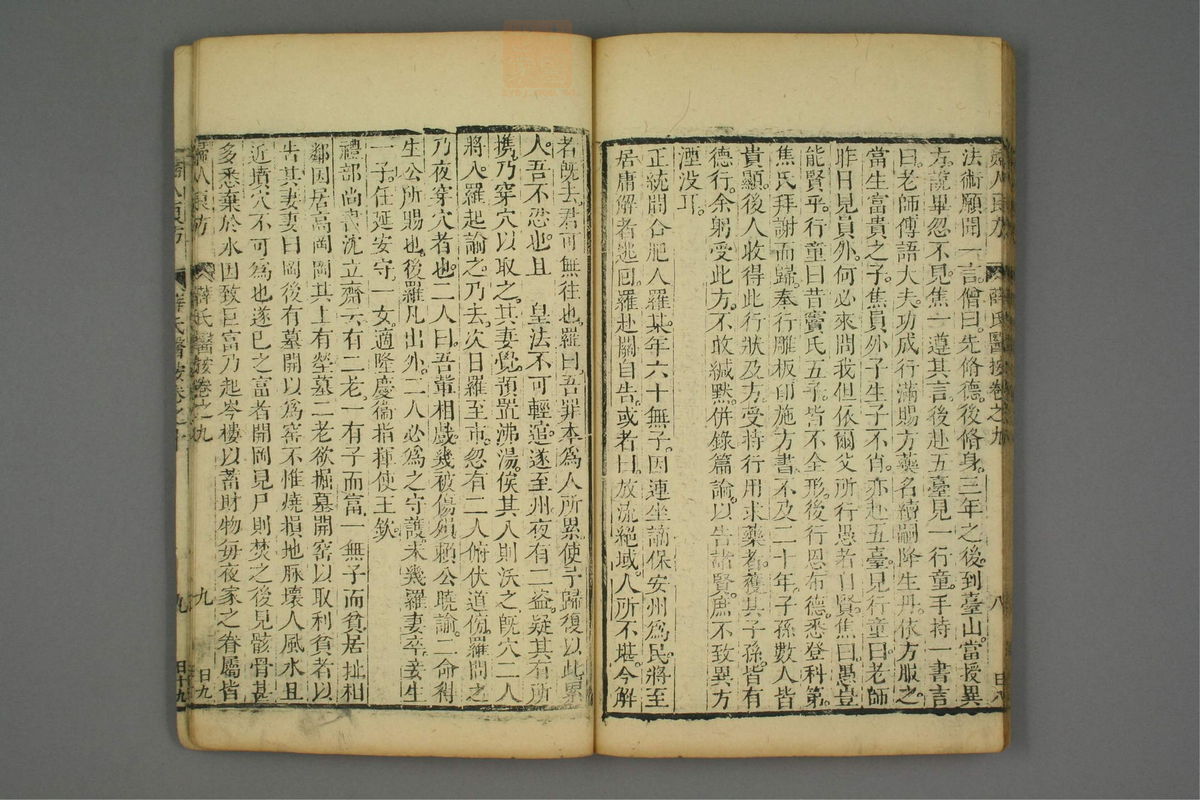 法術願聞一言僧曰先脩德後脩身三年之後到臺山當授異
方說畢忽不見焦一遵其言後赴五臺見一行童手持一書言
曰老師傳語大夫功成行滿賜方藥名續嗣降生丹依方服之
當生富貴之子焦員外子生子不肖亦赴五臺見行童曰老師
昨日見員外何必來問我但依爾父所行愚者自賢焦曰愚豈
能賢乎行童曰昔竇氏五子皆不全形後行恩布德悉登科第
焦氏拜謝而歸奉行雕板印施方書不及二十年子孫數人皆
貴顯後人收得此行狀及方受持行用求藥者獲其子孫皆有
德行余躬受此方不敢緘默併錄篇論以告諸賢庶不致異方
湮没耳
正統間合肥人羅某年六十無子因連坐謫保安州為民將至
居庸解者逃回羅赴關自告或者曰放流絕域人所不堪今解
者既去君可無往也羅曰吾罪本為人所累使予歸復以此累
人吾不忍也且 皇法不可輕逭遂至州夜有二盜疑其有所
携乃穿穴以取之其妻覺預置沸湯俟其入則沃之旣穴二人
將入羅起諭之乃去次日羅至市忽有二人俯伏道傍羅問之
乃夜穿穴者也二人曰吾輩相戲幾被傷殞賴公曉諭二命得
生公所賜也後羅凡出外二人必為之守護未幾羅妻卒妾生
一子任延安守一女適隆慶衛指揮使王欽
禮部尚書沈立齋云有二老一有子而富一無子而貧居址相
鄰因居高岡岡其上有塋墓二老欲掘墓開窑以取利貧者以
告其妻妻曰岡後有墓開以為窑不惟燒損地脉壞人風水且
近墳穴不可為也遂已之富者開岡見尸則焚之後見骸骨甚
多悉棄於水因致巨富乃起岑樓以蓄財物每夜家之眷屬皆
婦人良方 薛氏醫按卷之九 八
婦人良方 薛氏醫按卷之九 九